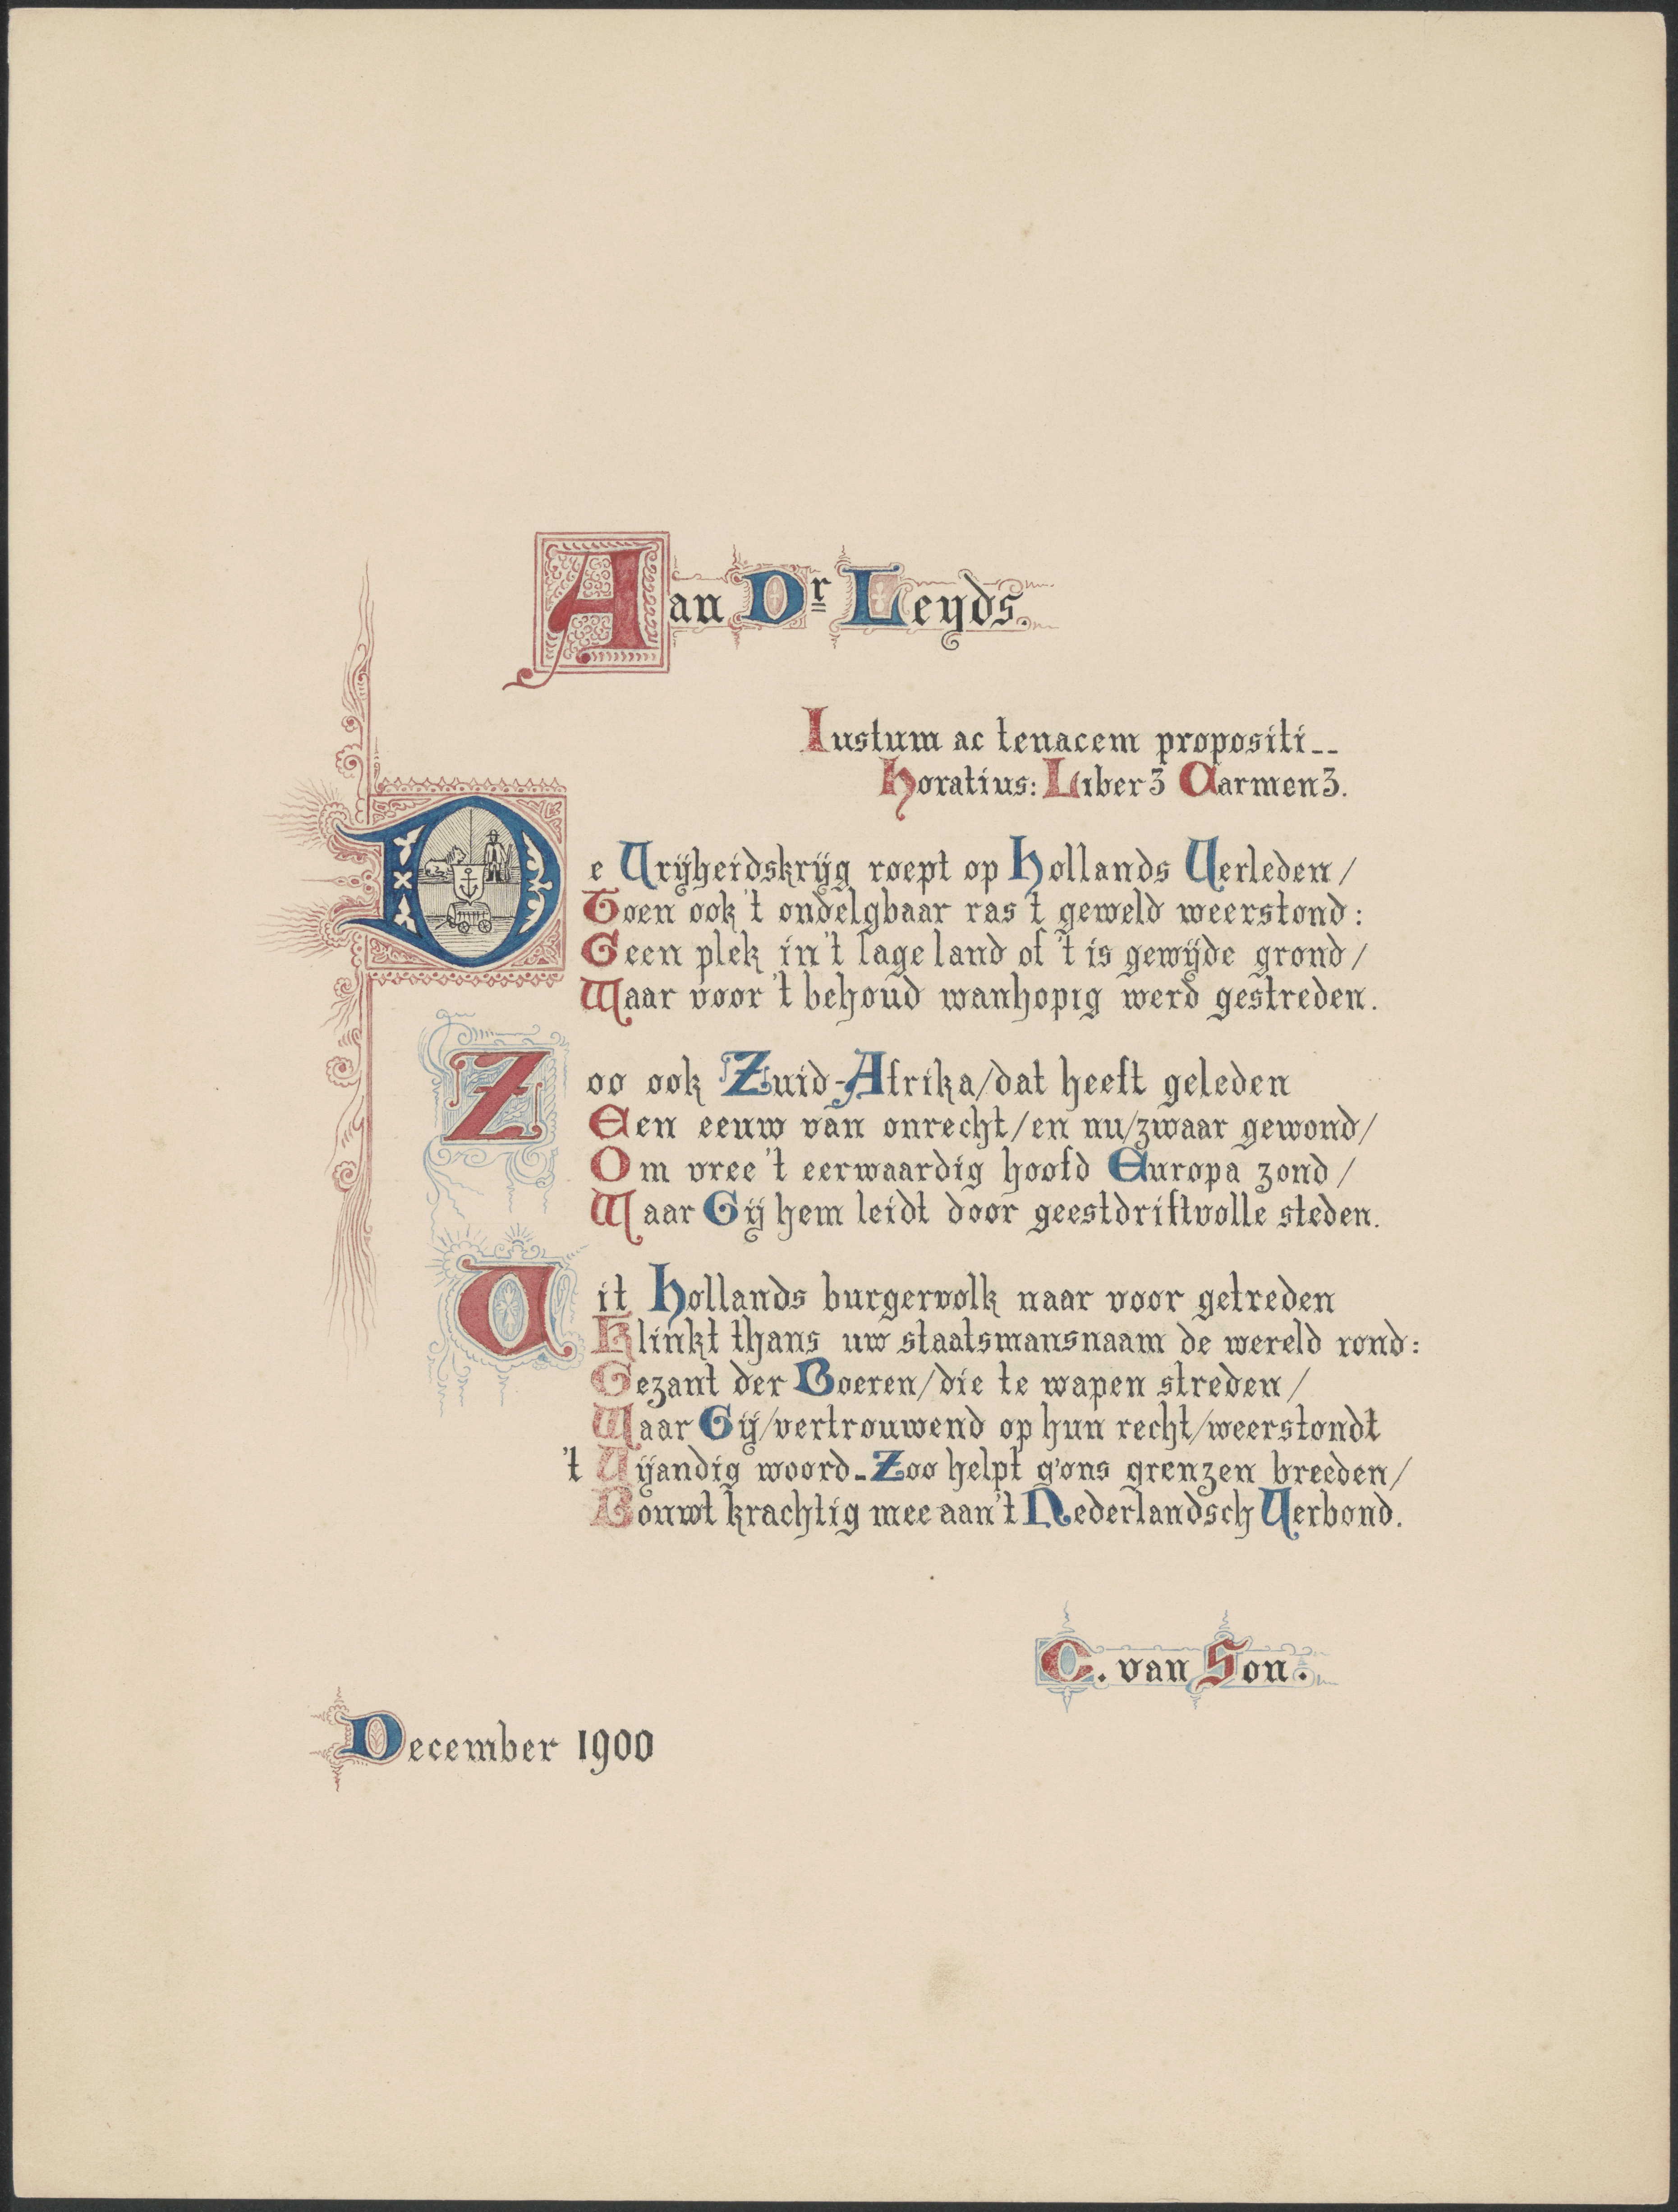 Aan Dr Leyds.
Iustum ac tenacem propositi--
Horatius: Liber 3 Carmen 3.
De Vrijheidskrijg roept op Hollands Verleden/
Toen ook 't ondelgbaar ras 't geweld weerstond:
Geen plek in 't lage land of 't is gewijde grond/
Waar voor 't behoud wanhopig werd gestreden.
Zoo ook Zuid-Afrika/dat heeft geleden
Een eeuw van onrecht/en nu/zwaar gewond/
Om vree 't eerwaardig hoofd Europa zond/
Waar Gij hem leidt door geestdriftvolle steden.
Uit Hollands burgervolk naar voor getreden
Klinkt thans uw staatsmansnaam de wereld rond:
Gezant der Boeren/die te wapen streden/
Waar Gij/vertrouwend op hun recht/weerstondt
't Vijandig woord-Zoo helpt g'ons grenzen breeden/
Bouwt krachtig mee aan 't Nederlandsch Verbond.
C. van Son.
December 1900